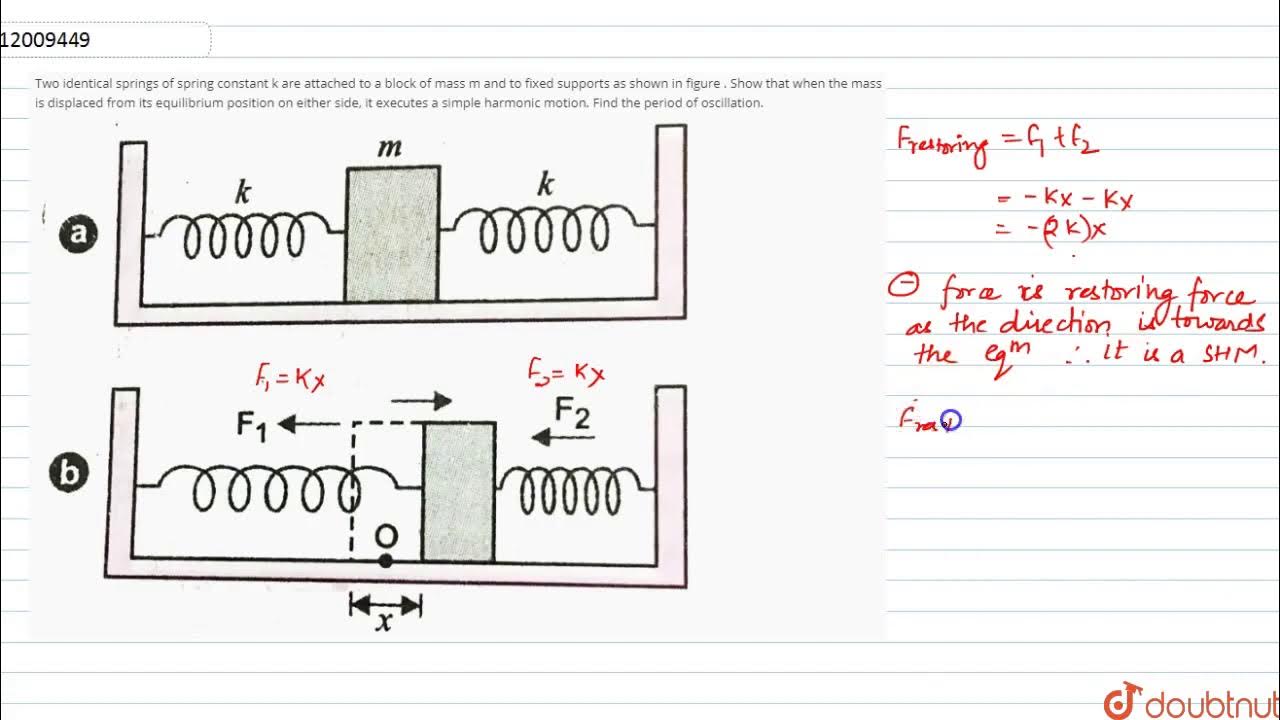 12009449
Two identical springs of spring constant k are attached to a block of mass m and to fixed supports as shown in figure . Show that when the mass
is displaced from its equilibrium position on either side, it executes a simple harmonic motion. Find the period of oscillation.
m
k
k
a
F₁ = Kx
F₂ = Kx
F₁
F₂
b
O
x
Frestoring = F₁ + F₂
= -Kx - Kx
= -(2K)x
⊖ force is restoring force
as the direction is towards
the eqᵐ ∴ It is a SHM.
doubtnut